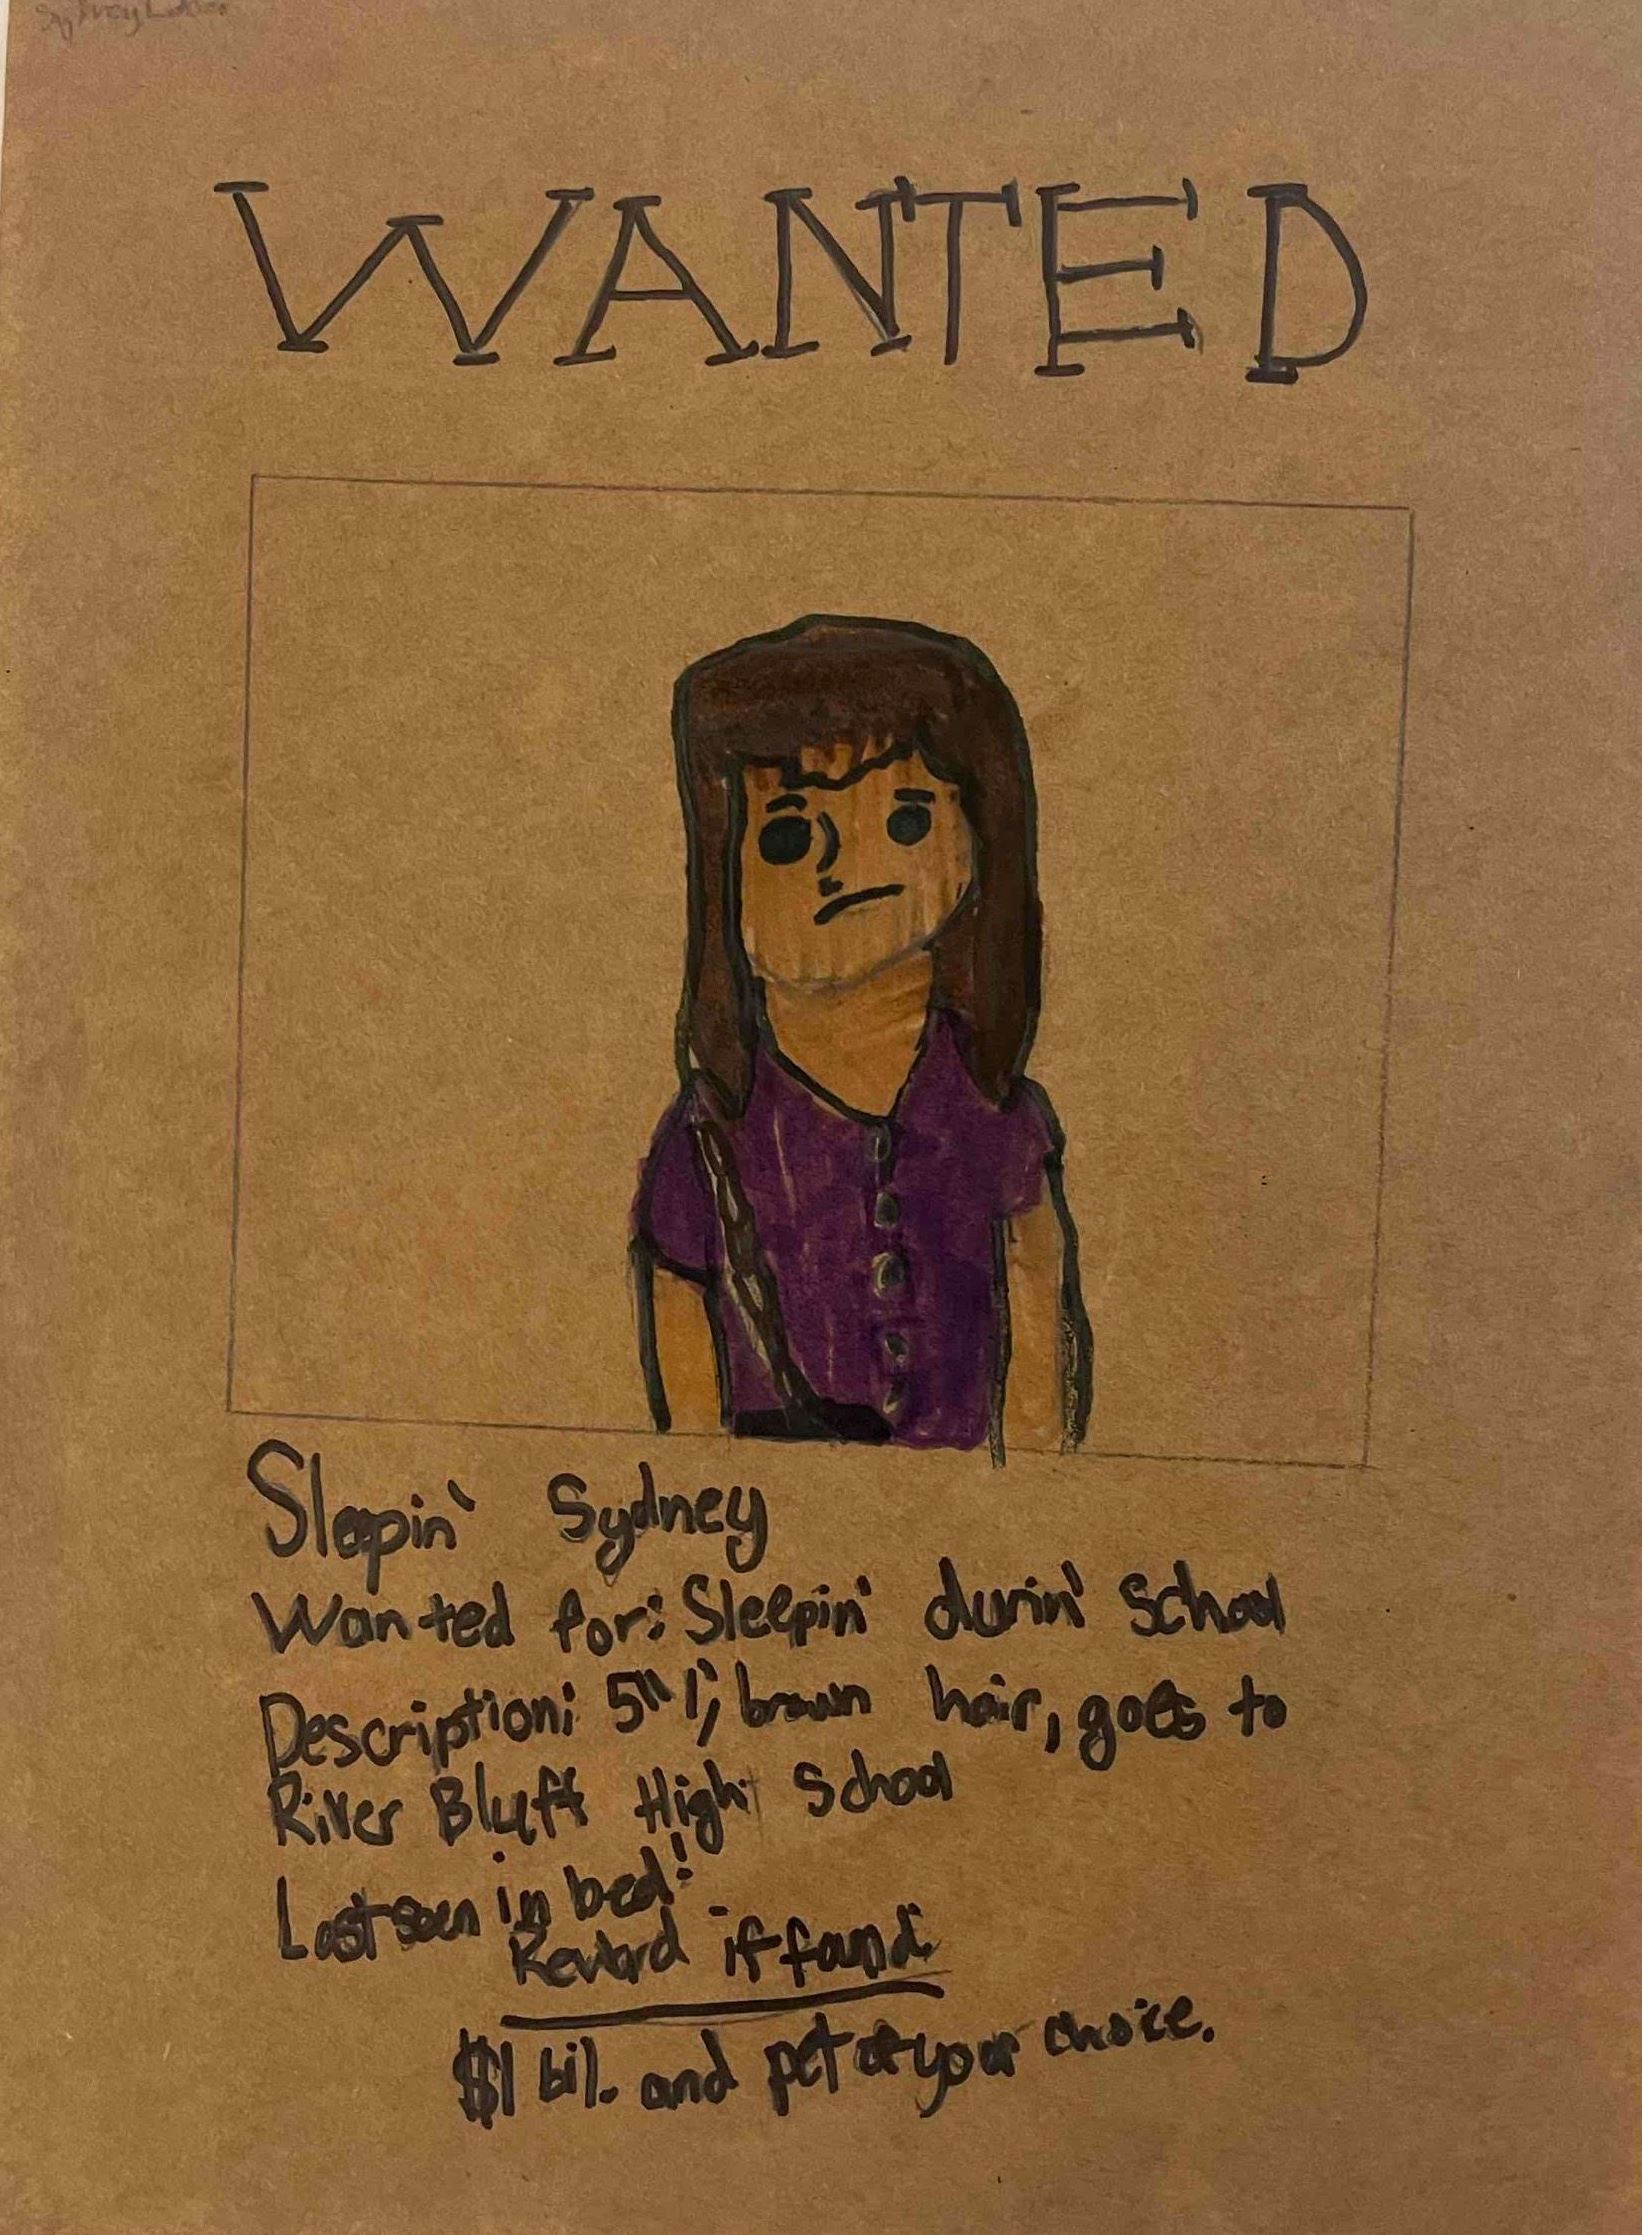 Sydney
WANTED
Sleepin' Sydney
Wanted for: Sleepin' durin' school
Description: 5" 1', brown hair, goes to
River Bluff High School
Last seen in bed!
Reward if found:
$1 bil. and pet of your choice.